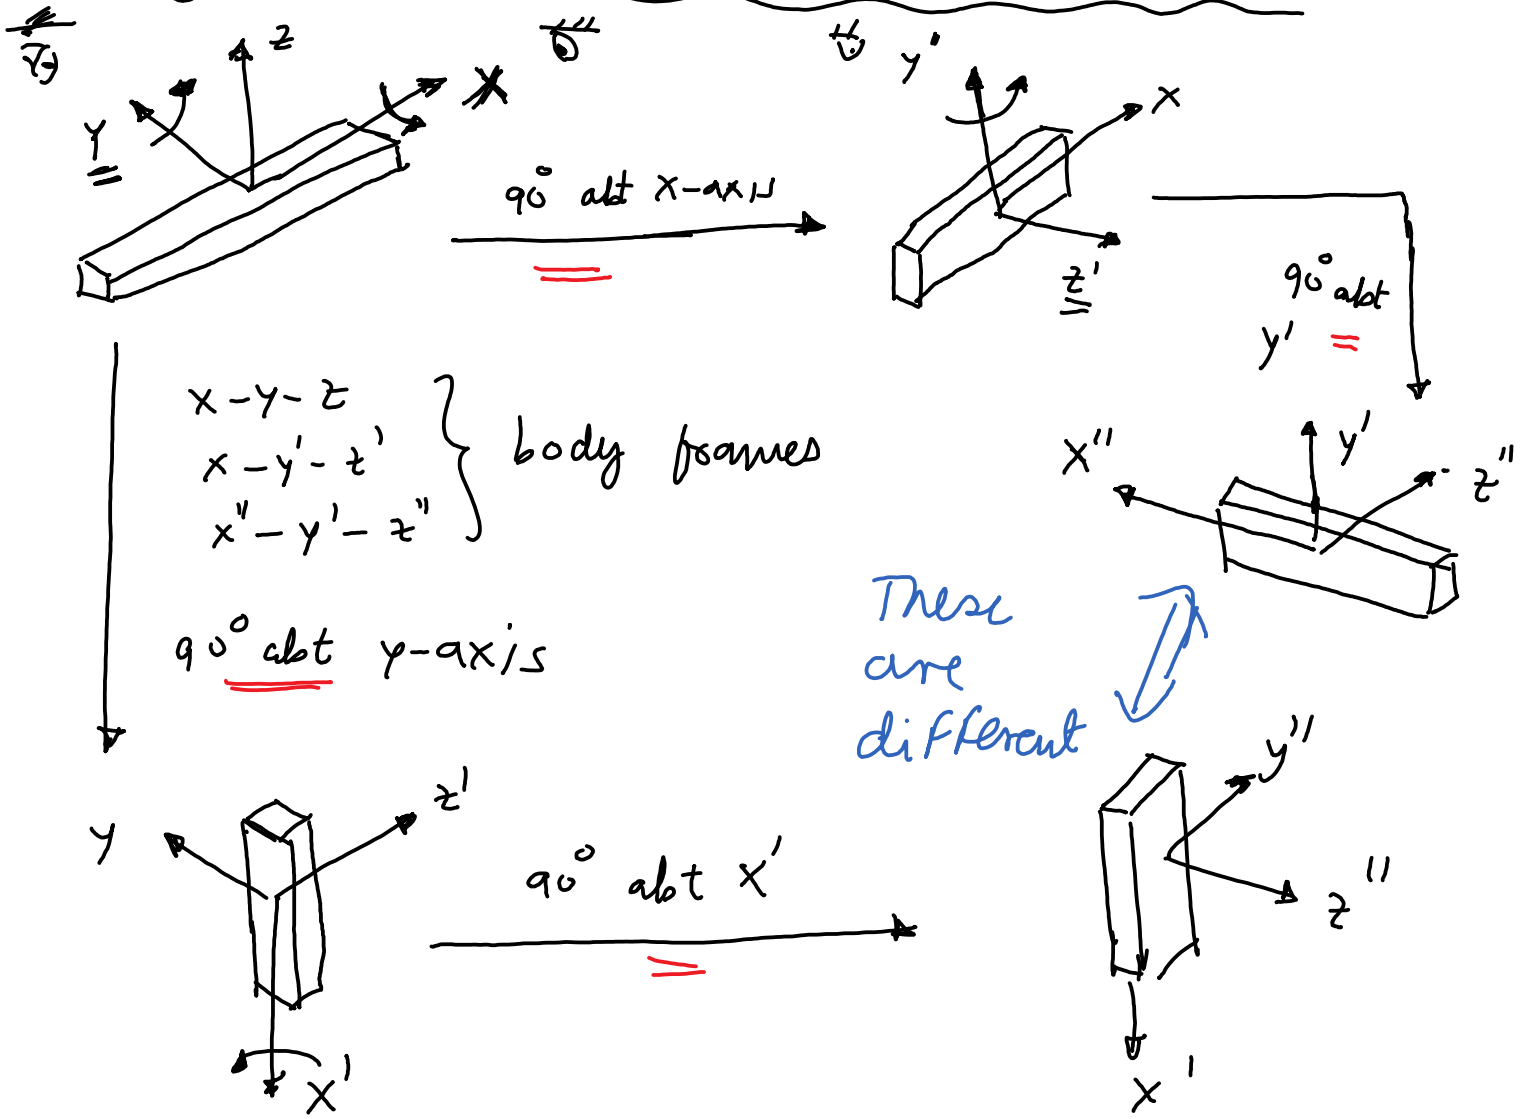 z
X
Y
y'
x
z'
90° abt x-axis
90° abt
y'
x - y - z
x - y' - z'
x'' - y' - z''
body frames
x''
y'
z''
90° abt y-axis
These
are
different
y
z'
x'
90° abt x'
y''
z''
x'